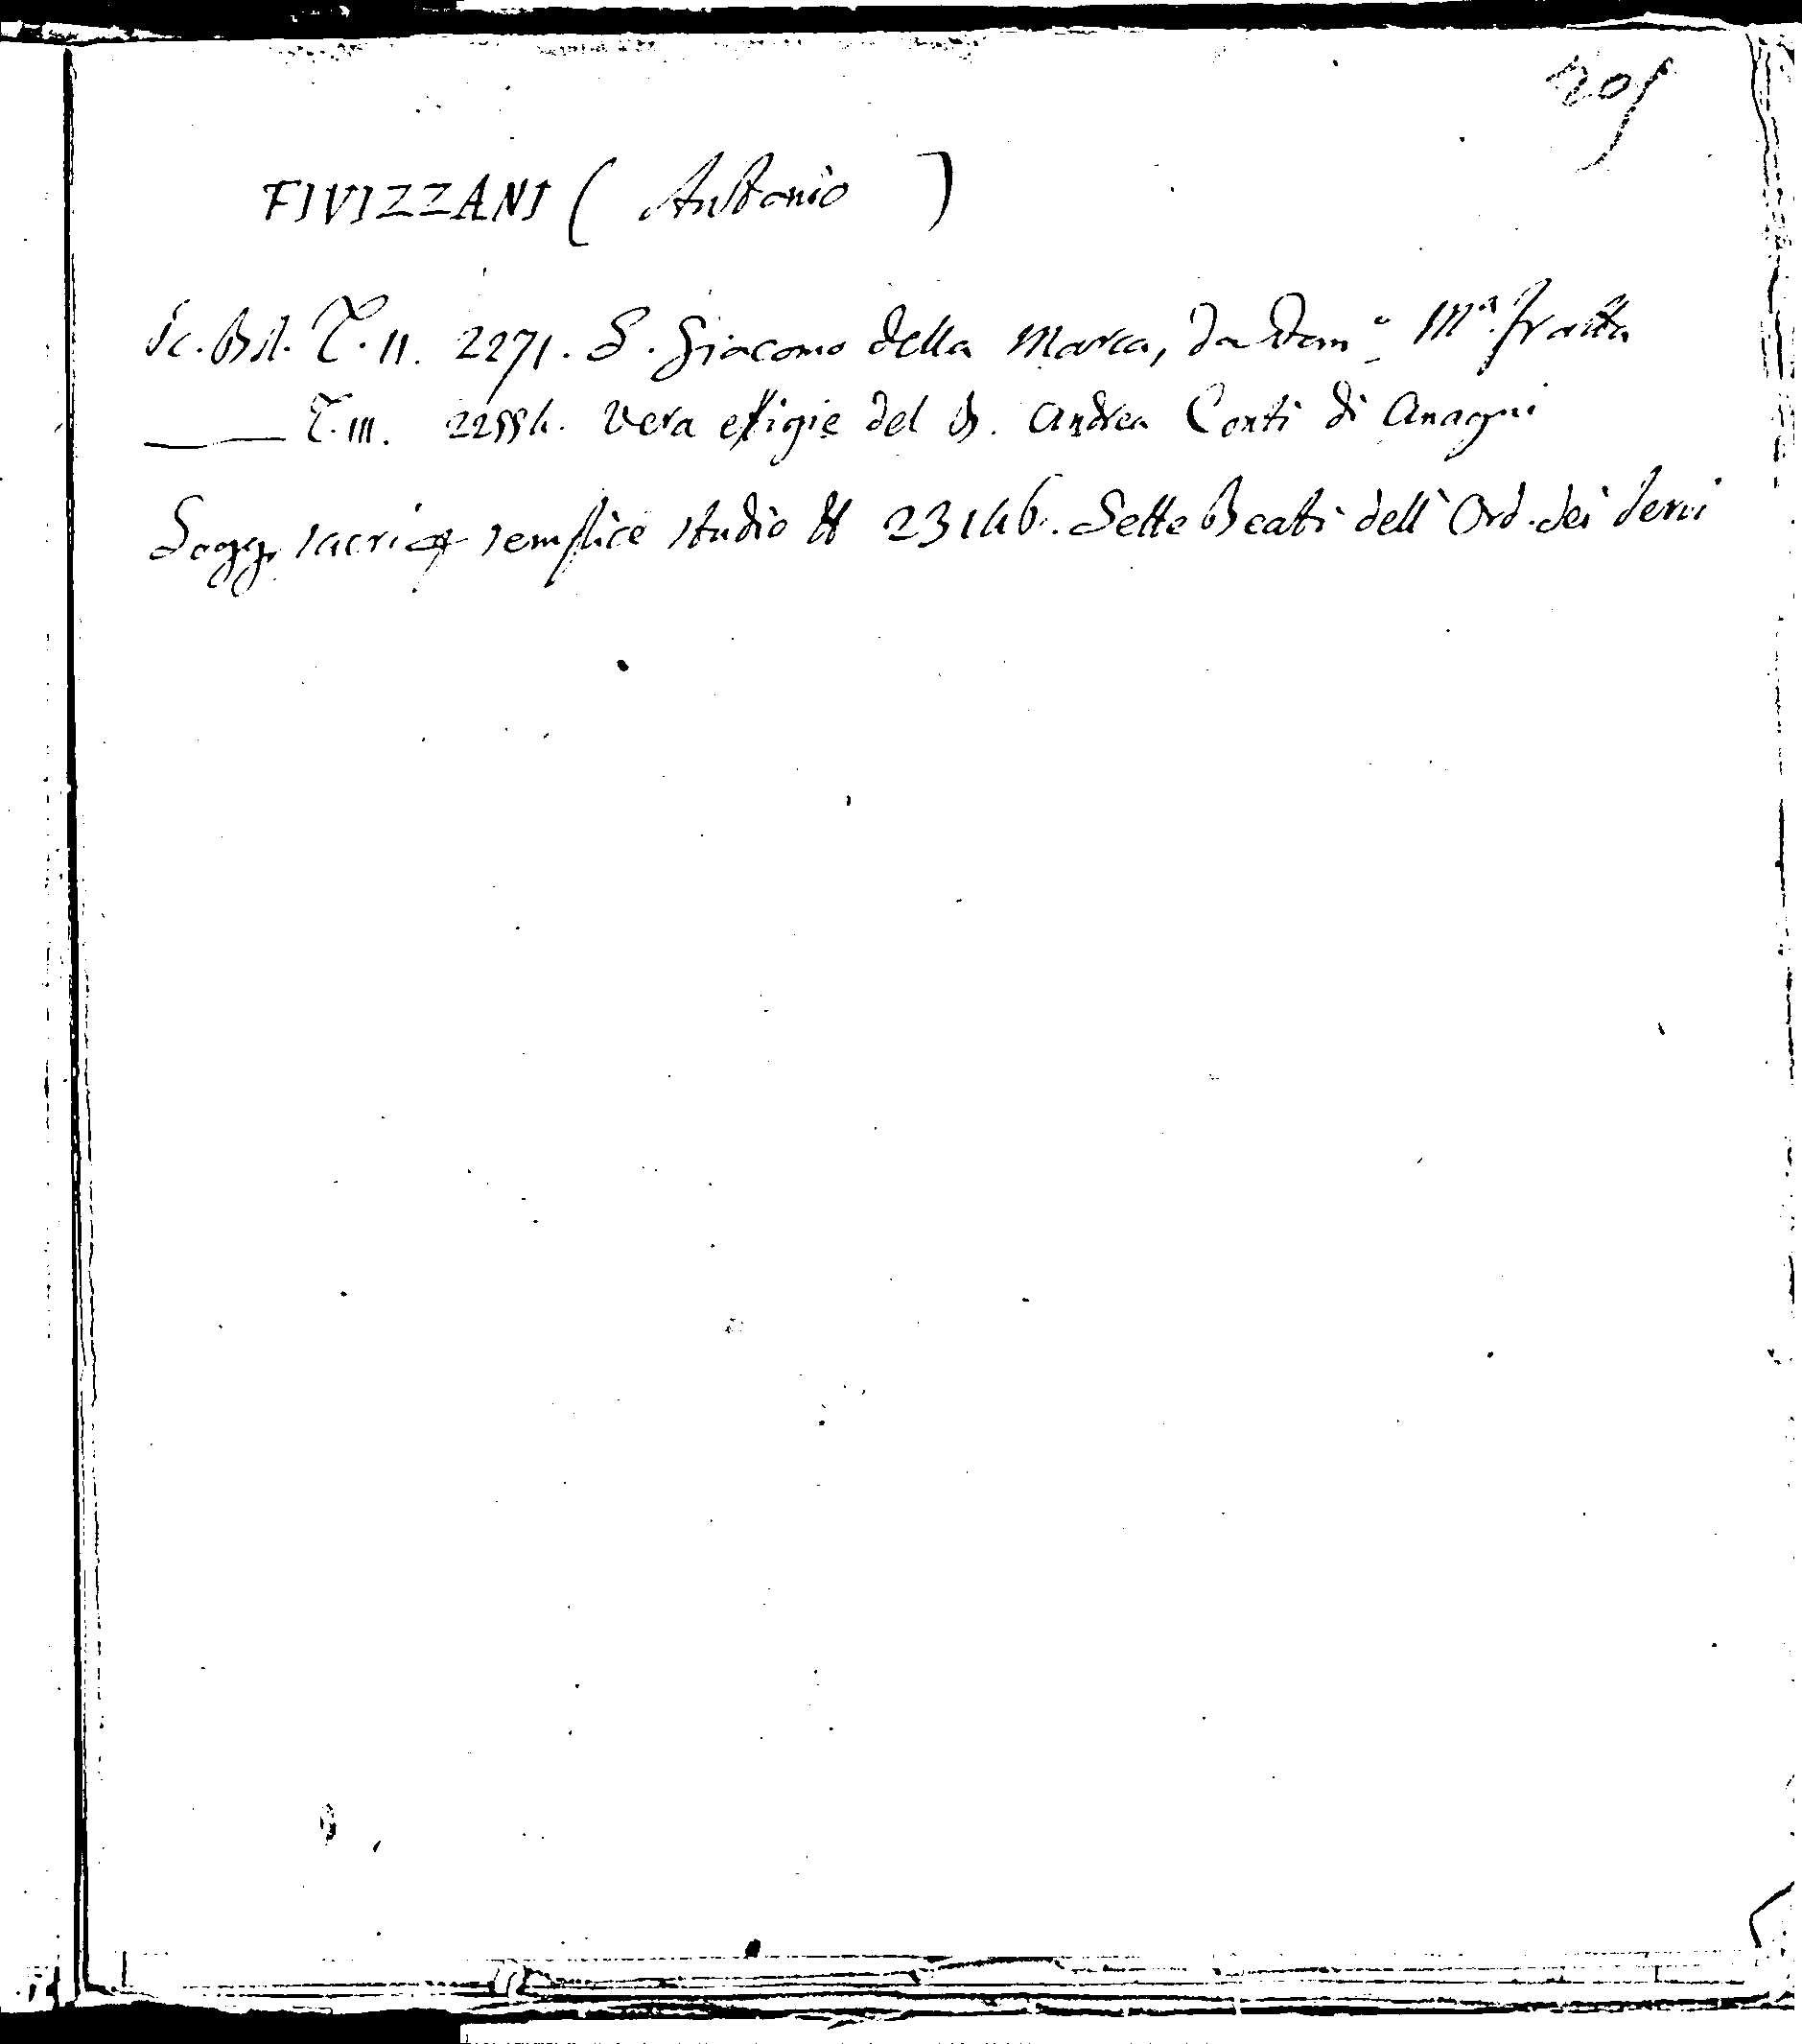 205
FIVIZZANI ( Antonio )
Sc. Bol. T. II. 2271. S. Giacomo della Marca, da Dom.º M.ª Fratta
T. III. 2255 h. Vera effigie del B. Andrea Conti di Anagni
Sogg. sacri semplice studio 23146. Sette Beati dell' Ord. dei Servi